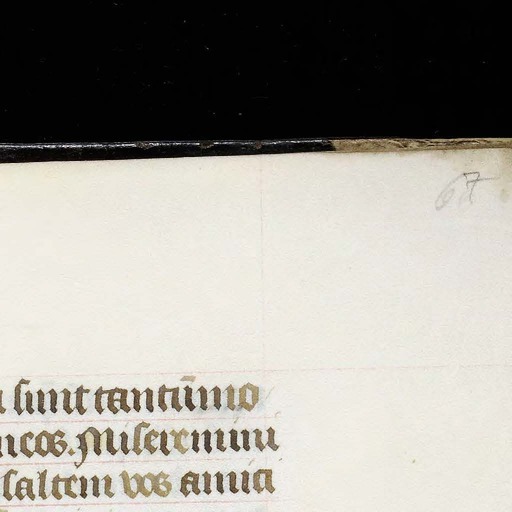 67
sunt tantūmo
meos. Miseremini
saltem vos amici